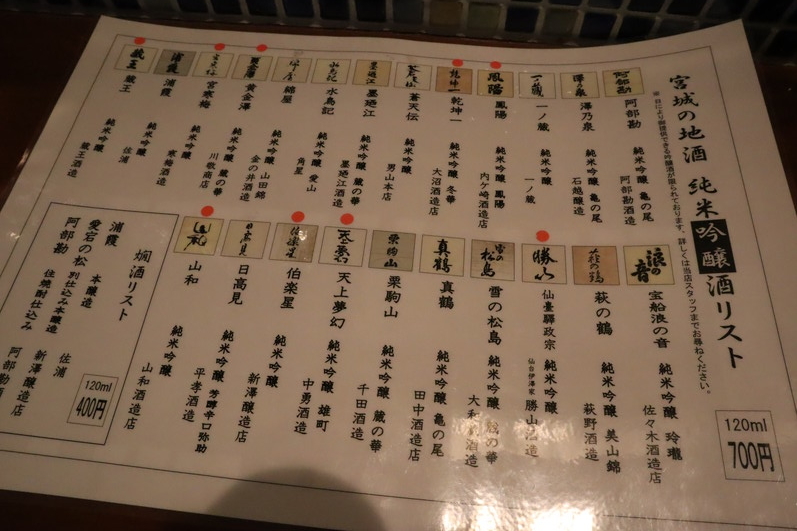 宮城の地酒 純米吟醸酒リスト
※日により御提供できる吟醸酒が限られております。詳しくは当店スタッフまでお尋ねください。
120ml
700円
阿部勘
阿部勘
純米吟醸 亀の尾
阿部勘酒造店
澤乃泉
澤乃泉
純米吟醸
石越醸造
一ノ蔵
一ノ蔵
純米吟醸
一ノ蔵
鳳陽
鳳陽
純米吟醸 鳳陽
内ケ崎酒造店
乾坤一
乾坤一
純米吟醸 冬華
大沼酒造店
蒼天伝
純米吟醸
男山本店
墨廼江
墨廼江
純米吟醸 蔵の華
墨廼江酒造
水鳥記
純米吟醸 愛山
角星
綿屋
純米吟醸 山田錦
金の井酒造
黄金澤
純米吟醸 蔵の華
川敬商店
宮寒梅
純米吟醸
寒梅酒造
浦霞
浦霞
純米吟醸
佐浦
蔵王
蔵王
純米吟醸
蔵王酒造
浪の音
宝船浪の音
純米吟醸 玲瓏
佐々木酒造店
萩の鶴
萩の鶴
純米吟醸 美山錦
萩野酒造
勝山
仙臺驛政宗
純米吟醸
仙台伊澤家 勝山酒造
雪の松島
雪の松島
純米吟醸 蔵の華
真鶴
真鶴
純米吟醸 亀の尾
田中酒造店
栗駒山
栗駒山
純米吟醸 蔵の華
千田酒造
天上夢幻
天上夢幻
純米吟醸 雄町
中勇酒造
伯楽星
伯楽星
純米吟醸
新澤醸造店
日高見
日高見
純米吟醸 芳醇辛口弥助
平孝酒造
山和
山和
純米吟醸
山和酒造店
燗酒リスト
浦霞 本醸造 佐浦
愛宕の松 別仕込み本醸造 新澤醸造店
阿部勘
120ml
400円